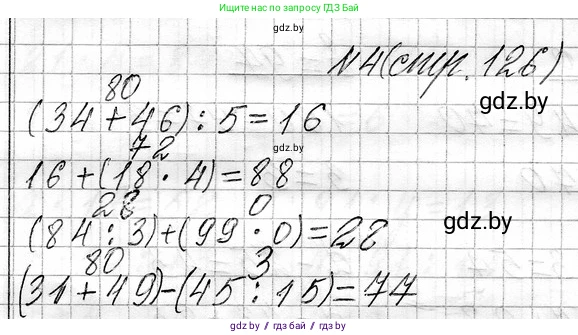 Находим по запросу ГДЗ БАЙ
gdz.by
№4(стр. 126)
80
(34+46):5=16
gdz.by
72
16+(18·4)=88
28 0
(84:3)+(99·0)=28
gdz.by
80 3
(31+49)-(45:15)=77
gdz.by / гдз бай / gdz.by